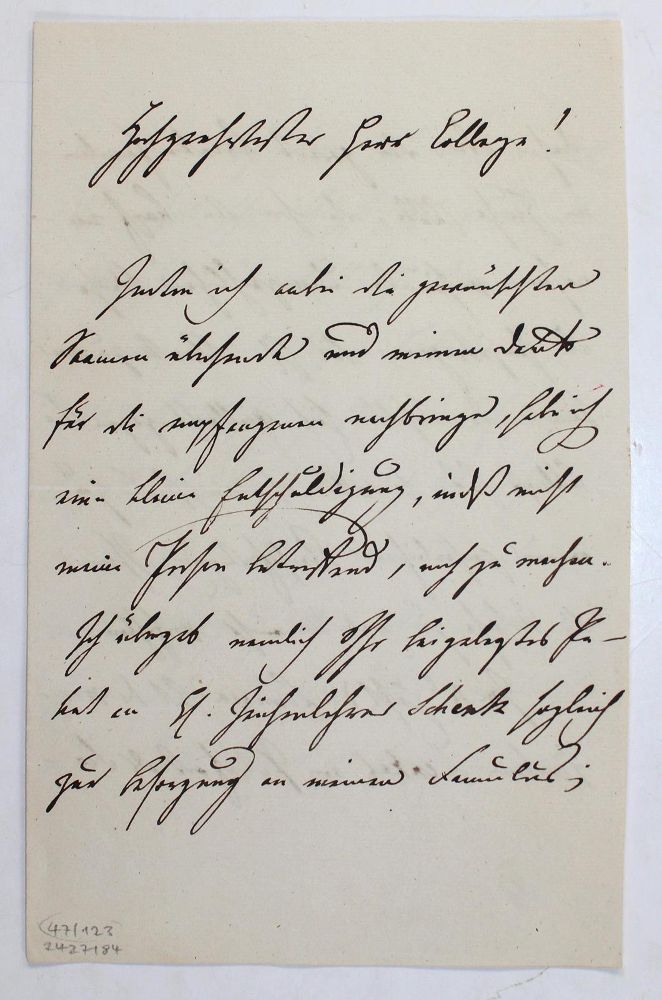 Hochgeehrtester Herr College!
Indem ich anbei die gewünschten
Saamen übersende und meinen Dank
für die empfangenen nachbringe, habe ich
eine kleine Entschuldigung, indeß nicht
meine Person betreffend, noch zu machen.
Ich übergab nemlich Ihr beigelegtes Pa-
ket an H. Zeichenlehrer Schenk sogleich
zur Besorgung an meinen Famulus;
47/123
2427184